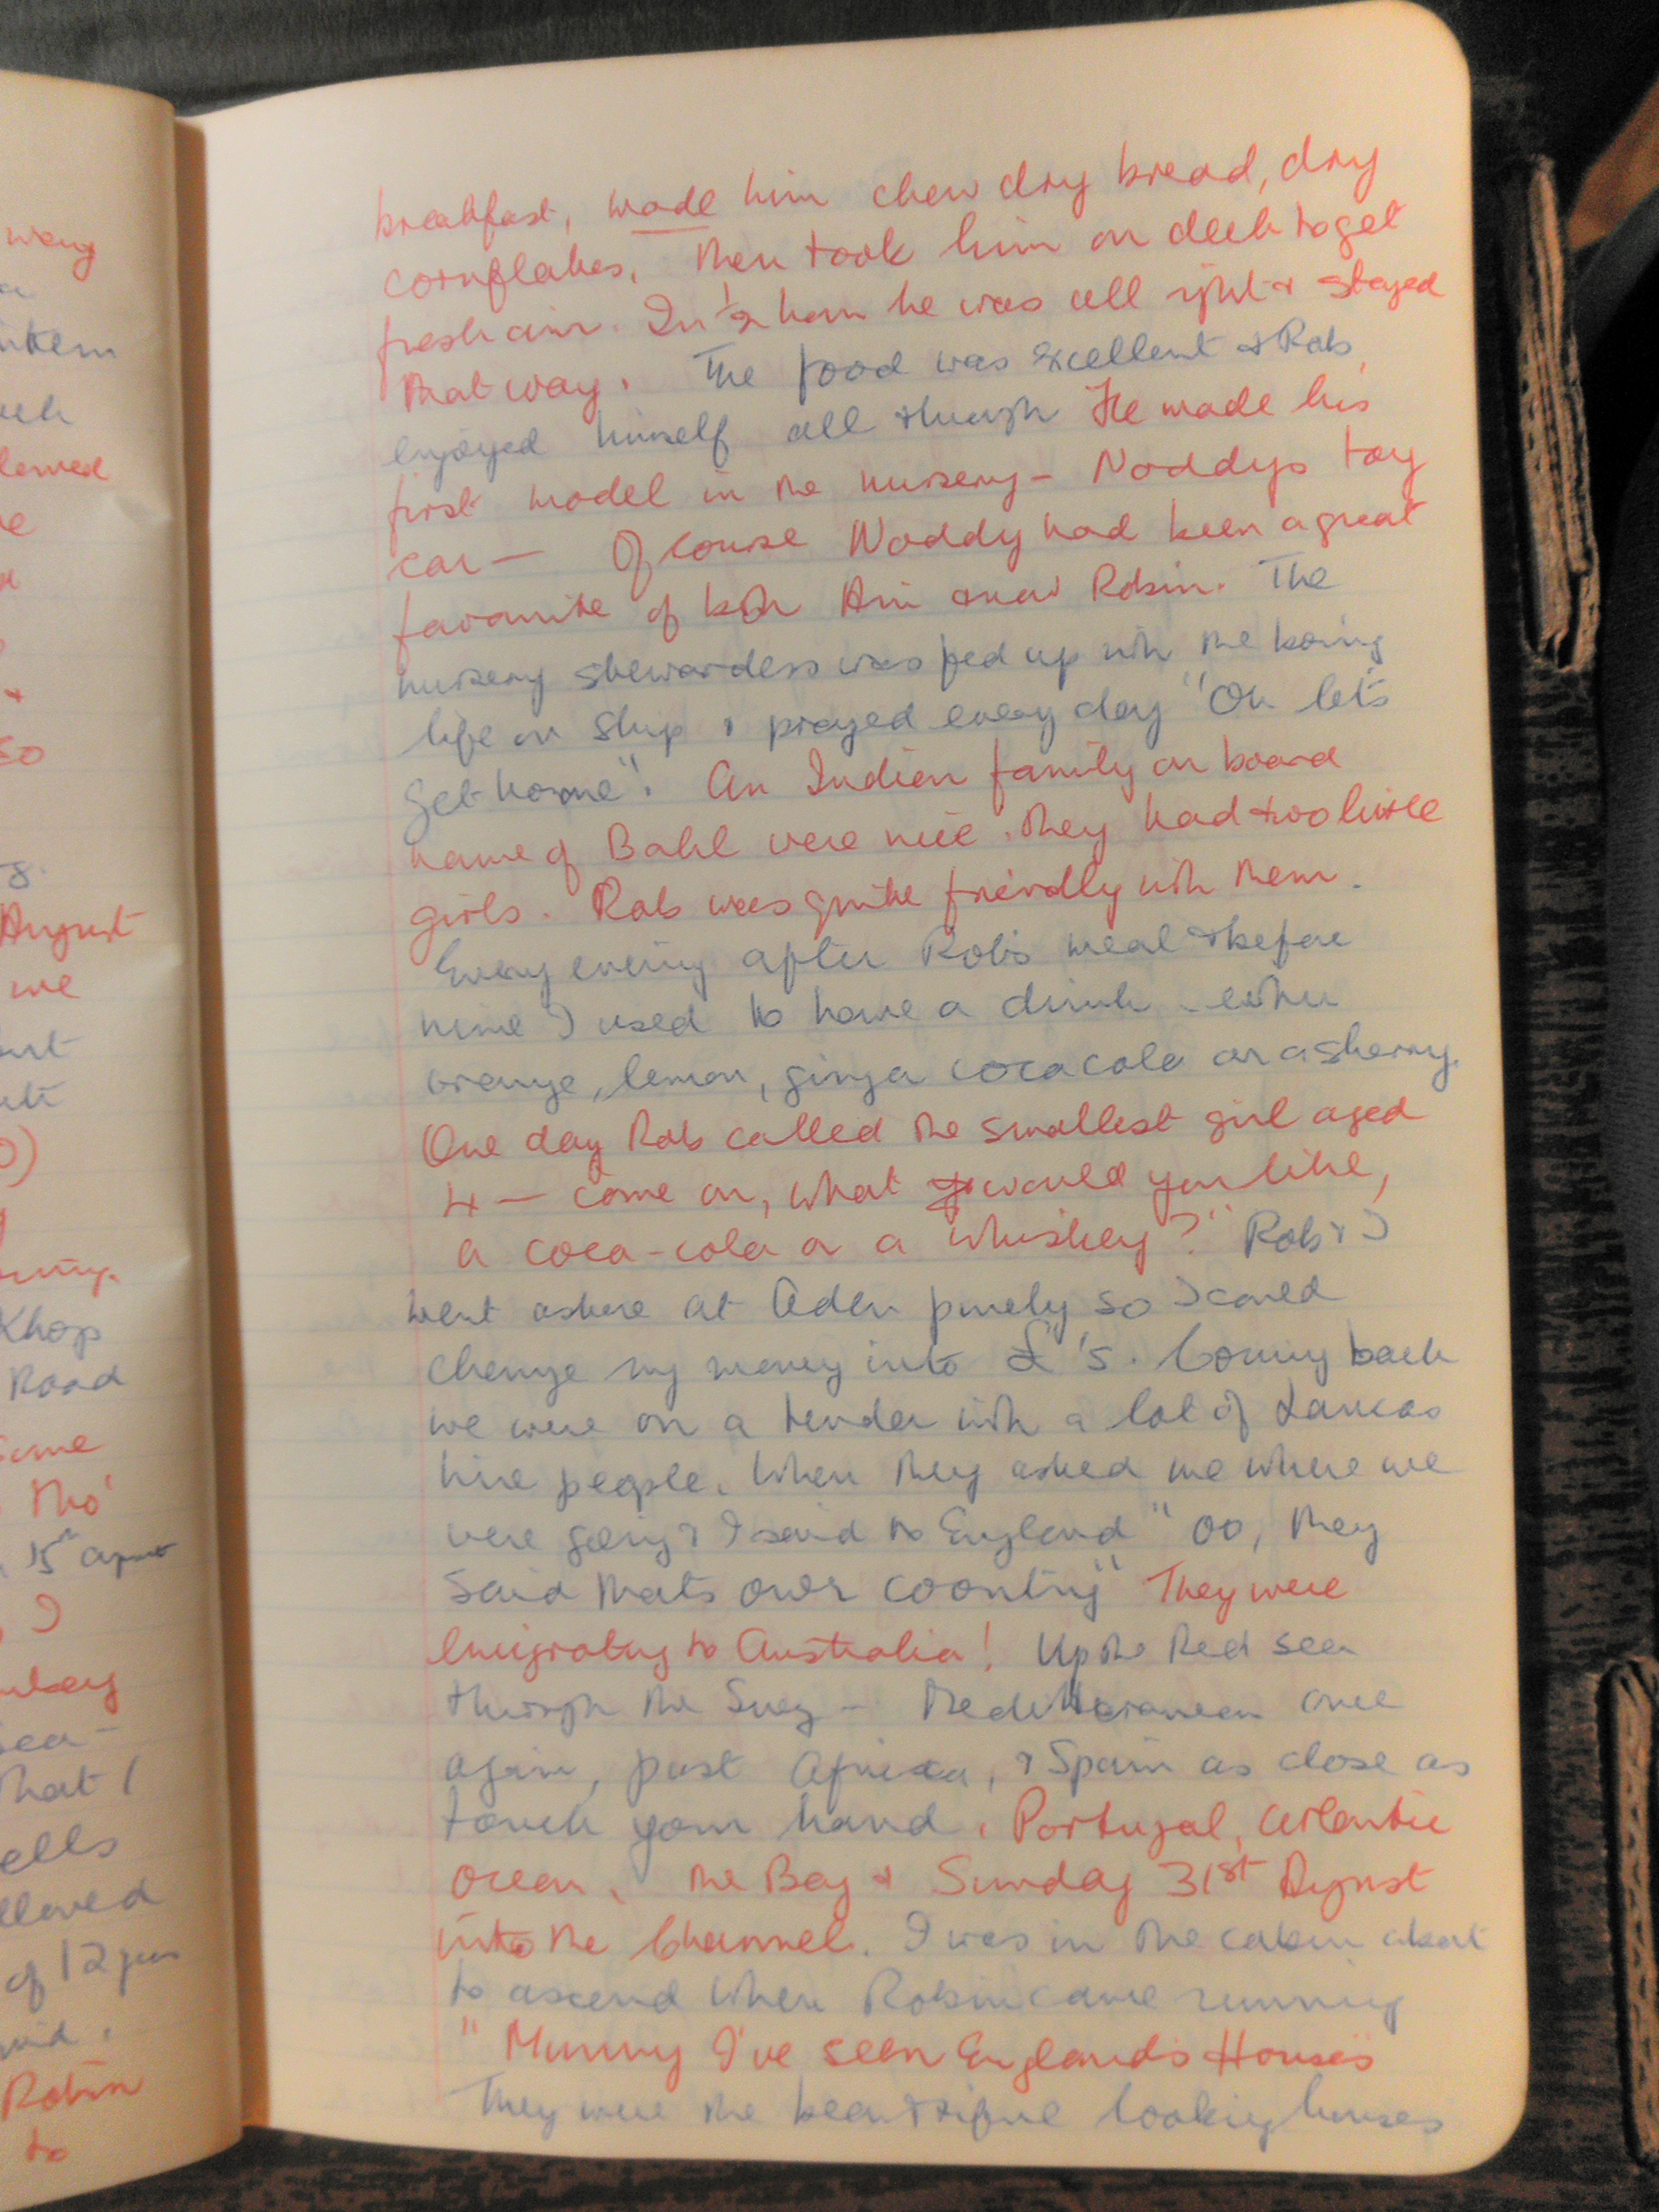 breakfast, made him chew dry bread, dry
cornflakes, then took him on deck to get
fresh air. In ½ hour he was all right & stayed
that way. The food was excellent & Rob
enjoyed himself all through He made his
first model in the nursery - Noddys toy
car — Of course Noddy had been a great
favourite of both & now Robin. The
nursery stewardess was fed up with the boring
life on ship & prayed every day "Oh let's
get home". An Indian family on board
name of Bahl were nice. They had two little
girls. Rob was quite friendly with them.
Every evening after Rob's meal & before
mine I used to have a drink - either
orange, lemon, ginger coca cola or a sherry.
One day Rob called the smallest girl aged
4 — come on, what would you like,
a coca-cola or a whiskey?" Rob & I
went ashore at Aden purely so I could
change my money into £'s. Coming back
we were on a tender with a lot of Lancas
hire people. When they asked me where we
were going & I said to England "oo, they
said thats ower coontry" They were
emigrating to Australia! Up the Red sea
through the Suez - Mediterranean once
again, past Africa, & Spain as close as
touch your hand. Portugal, Atlantic
Ocean, the Bay & Sunday 31st August
into the Channel. I was in the cabin about
to ascend when Robin came running
"Mummy I've seen England's Houses"
They were the beautiful looking houses
wang
lowed
so
August
me
Khop
Road
Some
Tho'
15th August
I
sea -
That I
of 12
Robin
to